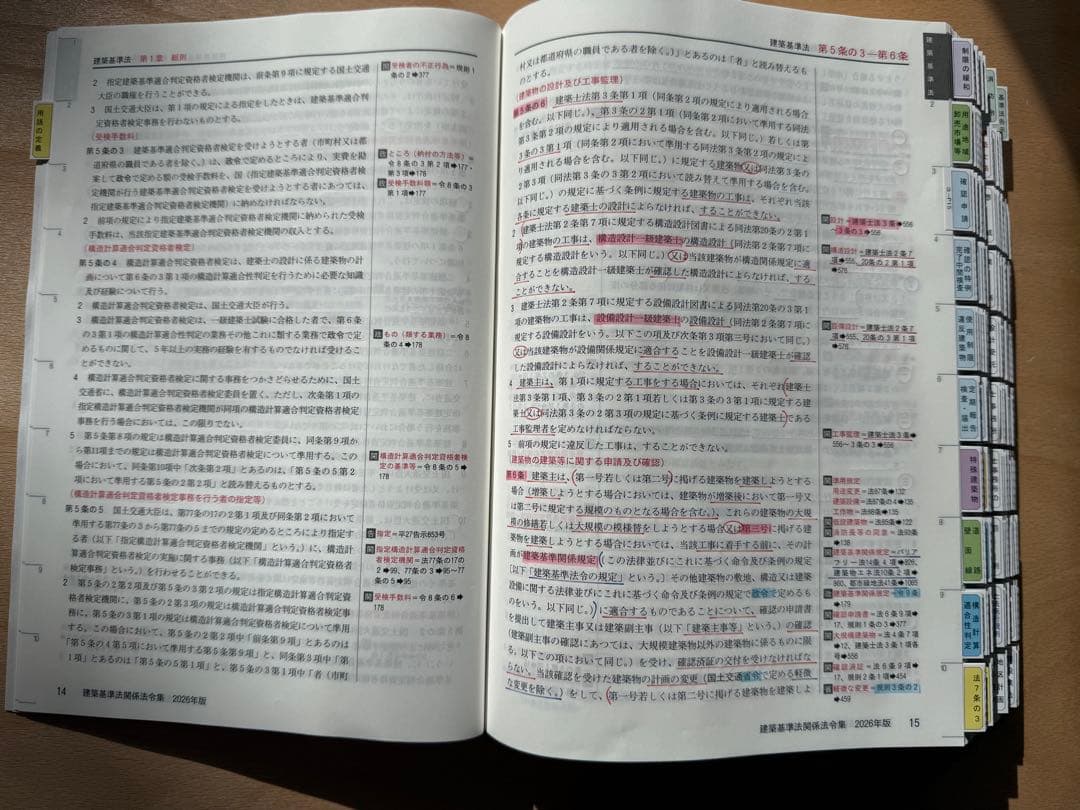 建築基準法 第1章 総則
2 指定建築基準適合判定資格者検定機関は、前条第9項に規定する国土交通
大臣の職権を行うことができる。
3 国土交通大臣は、第1項の規定による指定をしたときは、建築基準適合判
定資格者検定事務を行わないものとする。
(受検手数料)
第5条の3 建築基準適合判定資格者検定を受けようとする者(市町村又は都
道府県の職員である者を除く。)は、政令で定めるところにより、実費を勘
案して政令で定める額の受検手数料を、国(指定建築基準適合判定資格者検
定機関が行う建築基準適合判定資格者検定を受けようとする者にあつては、
指定建築基準適合判定資格者検定機関)に納めなければならない。
2 前項の規定により指定建築基準適合判定資格者検定機関に納められた受検
手数料は、当該指定建築基準適合判定資格者検定機関の収入とする。
(構造計算適合判定資格者検定)
第5条の4 構造計算適合判定資格者検定は、建築士の設計に係る建築物の計
画について第6条の3第1項の構造計算適合性判定を行うために必要な知識
及び経験について行う。
2 構造計算適合判定資格者検定は、国土交通大臣が行う。
3 構造計算適合判定資格者検定は、一級建築士試験に合格した者で、第6条
の3第1項の構造計算適合性判定の業務その他これに類する業務で政令で定
めるものに関して、5年以上の実務の経験を有するものでなければ受けるこ
とができない。
4 構造計算適合判定資格者検定に関する事務をつかさどらせるために、国土
交通省に、構造計算適合判定資格者検定委員を置く。ただし、次条第1項の
指定構造計算適合判定資格者検定機関が同項の構造計算適合判定資格者検定
事務を行う場合においては、この限りでない。
5 第5条第8項の規定は構造計算適合判定資格者検定委員に、同条第9項か
ら第11項までの規定は構造計算適合判定資格者検定について準用する。この
場合において、同条第10項中「次条第2項」とあるのは、「第5条の5第2
項において準用する第5条の2第2項」と読み替えるものとする。
(構造計算適合判定資格者検定事務を行う者の指定等)
第5条の5 国土交通大臣は、第77条の17の2第1項及び同条第2項において
準用する第77条の3から第77条の5までの規定の定めるところにより指定す
る者(以下「指定構造計算適合判定資格者検定機関」という。)に、構造計
算適合判定資格者検定の実施に関する事務(以下「構造計算適合判定資格者検定
事務」という。)を行わせることができる。
2 第5条の2第2項及び第5条の3第2項の規定は指定構造計算適合判定資
格者検定機関に、第5条の2第3項の規定は構造計算適合判定資格者検定事
務に、第5条の3第1項の規定は構造計算適合判定資格者検定について準用
する。この場合において、第5条の2第2項中「前条第9項」とあるのは
「第5条の4第5項において準用する第5条第9項」と、同条第3項中「第
1項」とあるのは「第5条の5第1項」と、第5条の3第1項中「者(市町
関 受検者の不正行為=規則1
条の2➡377
政 ところ(納付の方法等)=
令8条の3第2項➡177・
第3項➡178
政 受検手数料額=令8条の3
第1項➡177
政 もの(類する業務)=令6
条の4➡178
関 構造計算適合判定資格者検
定の基準等=令8条の5➡
178
告 指定=平27告示853号
関 指定構造計算適合判定資格
者検定機関=法77条の17の
2➡99、77条の3➡95~77
条の5➡95
関 受検手数料=令8条の6➡
178
14 建築基準法関係法令集 2026年版
用語の定義
建築基準法 第5条の3―第6条
村又は都道府県の職員である者を除く。)」とあるのは「者」と読み替えるも
のとする。
(建築物の設計及び工事監理)
第5条の6 建築士法第3条第1項(同条第2項の規定により適用される場合
を含む。以下同じ。)、第3条の2第1項(同条第2項において準用する同法
第3条第2項の規定により適用される場合を含む。以下同じ。)若しくは第
3条の3第1項(同条第2項において準用する同法第3条第2項の規定によ
り適用される場合を含む。以下同じ。)に規定する建築物又は同法第3条の
2第3項(同法第3条の3第2項において読み替えて準用する場合を含む。
以下同じ。)の規定に基づく条例に規定する建築物の工事は、それぞれ当該
各条に規定する建築士の設計によらなければ、することができない。
2 建築士法第2条第7項に規定する構造設計図書による同法第20条の2第1
項の建築物の工事は、構造設計一級建築士の構造設計(同法第2条第7項に
規定する構造設計をいう。以下同じ。)又は当該建築物が構造関係規定に適
合することを構造設計一級建築士が確認した構造設計によらなければ、する
ことができない。
3 建築士法第2条第7項に規定する設備設計図書による同法第20条の3第1
項の建築物の工事は、設備設計一級建築士の設備設計(同法第2条第7項に
規定する設備設計をいう。以下この項及び次条第3項第三号において同じ。)
又は当該建築物が設備関係規定に適合することを設備設計一級建築士が確認
した設備設計によらなければ、することができない。
4 建築主は、第1項に規定する工事をする場合においては、それぞれ建築士
法第3条第1項、第3条の2第1項若しくは第3条の3第1項に規定する建
築士又は同法第3条の2第3項の規定に基づく条例に規定する建築士である
工事監理者を定めなければならない。
5 前項の規定に違反した工事は、することができない。
(建築物の建築等に関する申請及び確認)
第6条 建築主は、第一号若しくは第二号に掲げる建築物を建築しようとする
場合(増築しようとする場合においては、建築物が増築後において第一号又
は第二号に規定する規模のものとなる場合を含む。)、これらの建築物の大規
模の修繕若しくは大規模の模様替をしようとする場合又は第三号に掲げる建
築物を建築しようとする場合においては、当該工事に着手する前に、その計
画が建築基準関係規定(この法律並びにこれに基づく命令及び条例の規定
(以下「建築基準法令の規定」という。)その他建築物の敷地、構造又は建築
設備に関する法律並びにこれに基づく命令及び条例の規定で政令で定めるも
のをいう。以下同じ。)に適合するものであることについて、確認の申請書
を提出して建築主事又は建築副主事(以下「建築主事等」という。)の確認
(建築副主事の確認にあつては、大規模建築物以外の建築物に係るものに限
る。以下この項において同じ。)を受け、確認済証の交付を受けなければな
らない。当該確認を受けた建築物の計画の変更(国土交通省令で定める軽微
な変更を除く。)をして、第一号若しくは第二号に掲げる建築物を建築しよ
関 設計=建築士法3条➡556
~3条の3➡556
関 構造設計=建築士法2条7
項➡555、20条の2第1項
➡576
関 設備設計=建築士法2条7
項➡555、20条の3第1項
➡576
関 工事監理=建築士法3条➡
556~3条の3➡556
関 準用規定
用途変更=法87条➡132
建築設備=法87条の4➡135
工作物=法88条➡135
関 仮設建築物=法85条➡122
関 消防長等の同意=法93条
➡138
関 建築基準関係規定=バリア
フリー法14条4項➡826、
建築物エネ法10条2項➡
980、都市緑地法41条➡1065
政 建築基準関係規定=令9条
➡179
関 確認申請書=法6条9項➡
17、規則1条の3➡377
関 大規模建築物=法4条7項
➡12、建築士法3条1項各
号➡556
関 確認済証=法6条9項➡
17、規則2条1項➡454
省 軽微な変更=規則3条の2
➡459
建築基準法関係法令集 2026年版 15
建築基準法
制限の緩和
用途地域
卸売市場等
確認申請
確認の特例
完了中間検査
使用制限
違反建築物
定期報告
検査・届出
特殊建築物
壁面線
道路
構造計算
適合性判定
法7条の3